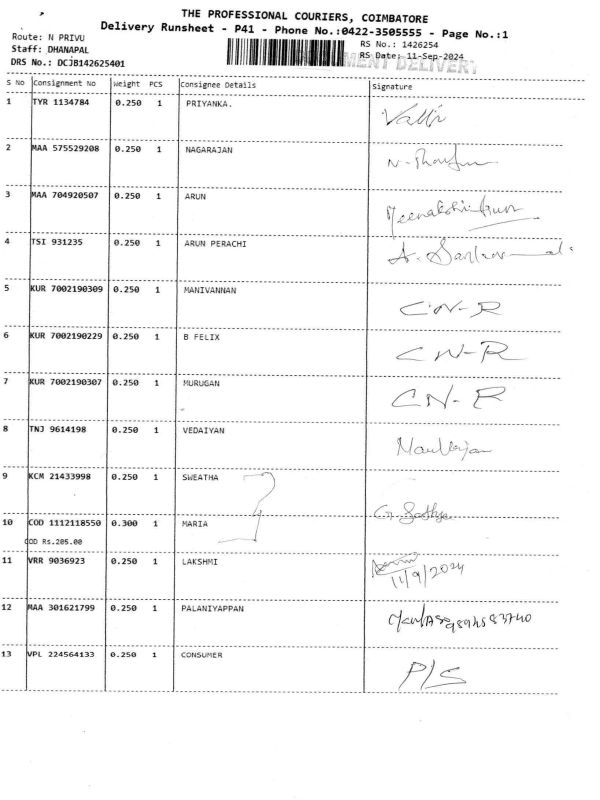 THE PROFESSIONAL COURIERS, COIMBATORE
Delivery Runsheet - P41 - Phone No.:0422-3505555 - Page No.:1
Route: N PRIVU
RS No.: 1426254
Staff: DHANAPAL
RS Date: 11-Sep-2024
DRS No.: DCJB142625401
DELIVERY
S No Consignment No Weight PCS Consignee Details Signature
1 TYR 1134784 0.250 1 PRIYANKA. Valli
2 MAA 575529208 0.250 1 NAGARAJAN
3 MAA 704920507 0.250 1 ARUN Meenakshi Arun
4 TSI 931235 0.250 1 ARUN PERACHI
5 KUR 7002190309 0.250 1 MANIVANNAN CN-R
6 KUR 7002190229 0.250 1 B FELIX CN-R
7 KUR 7002190307 0.250 1 MURUGAN CN-R
8 TNJ 9614198 0.250 1 VEDAIYAN
9 KCM 21433998 0.250 1 SWEATHA G. Sathya
10 COD 1112118550 0.300 1 MARIA
COD Rs.205.00
11 VRR 9036923 0.250 1 LAKSHMI
11/9/2024
12 MAA 301621799 0.250 1 PALANIYAPPAN
13 VPL 224564133 0.250 1 CONSUMER P/S